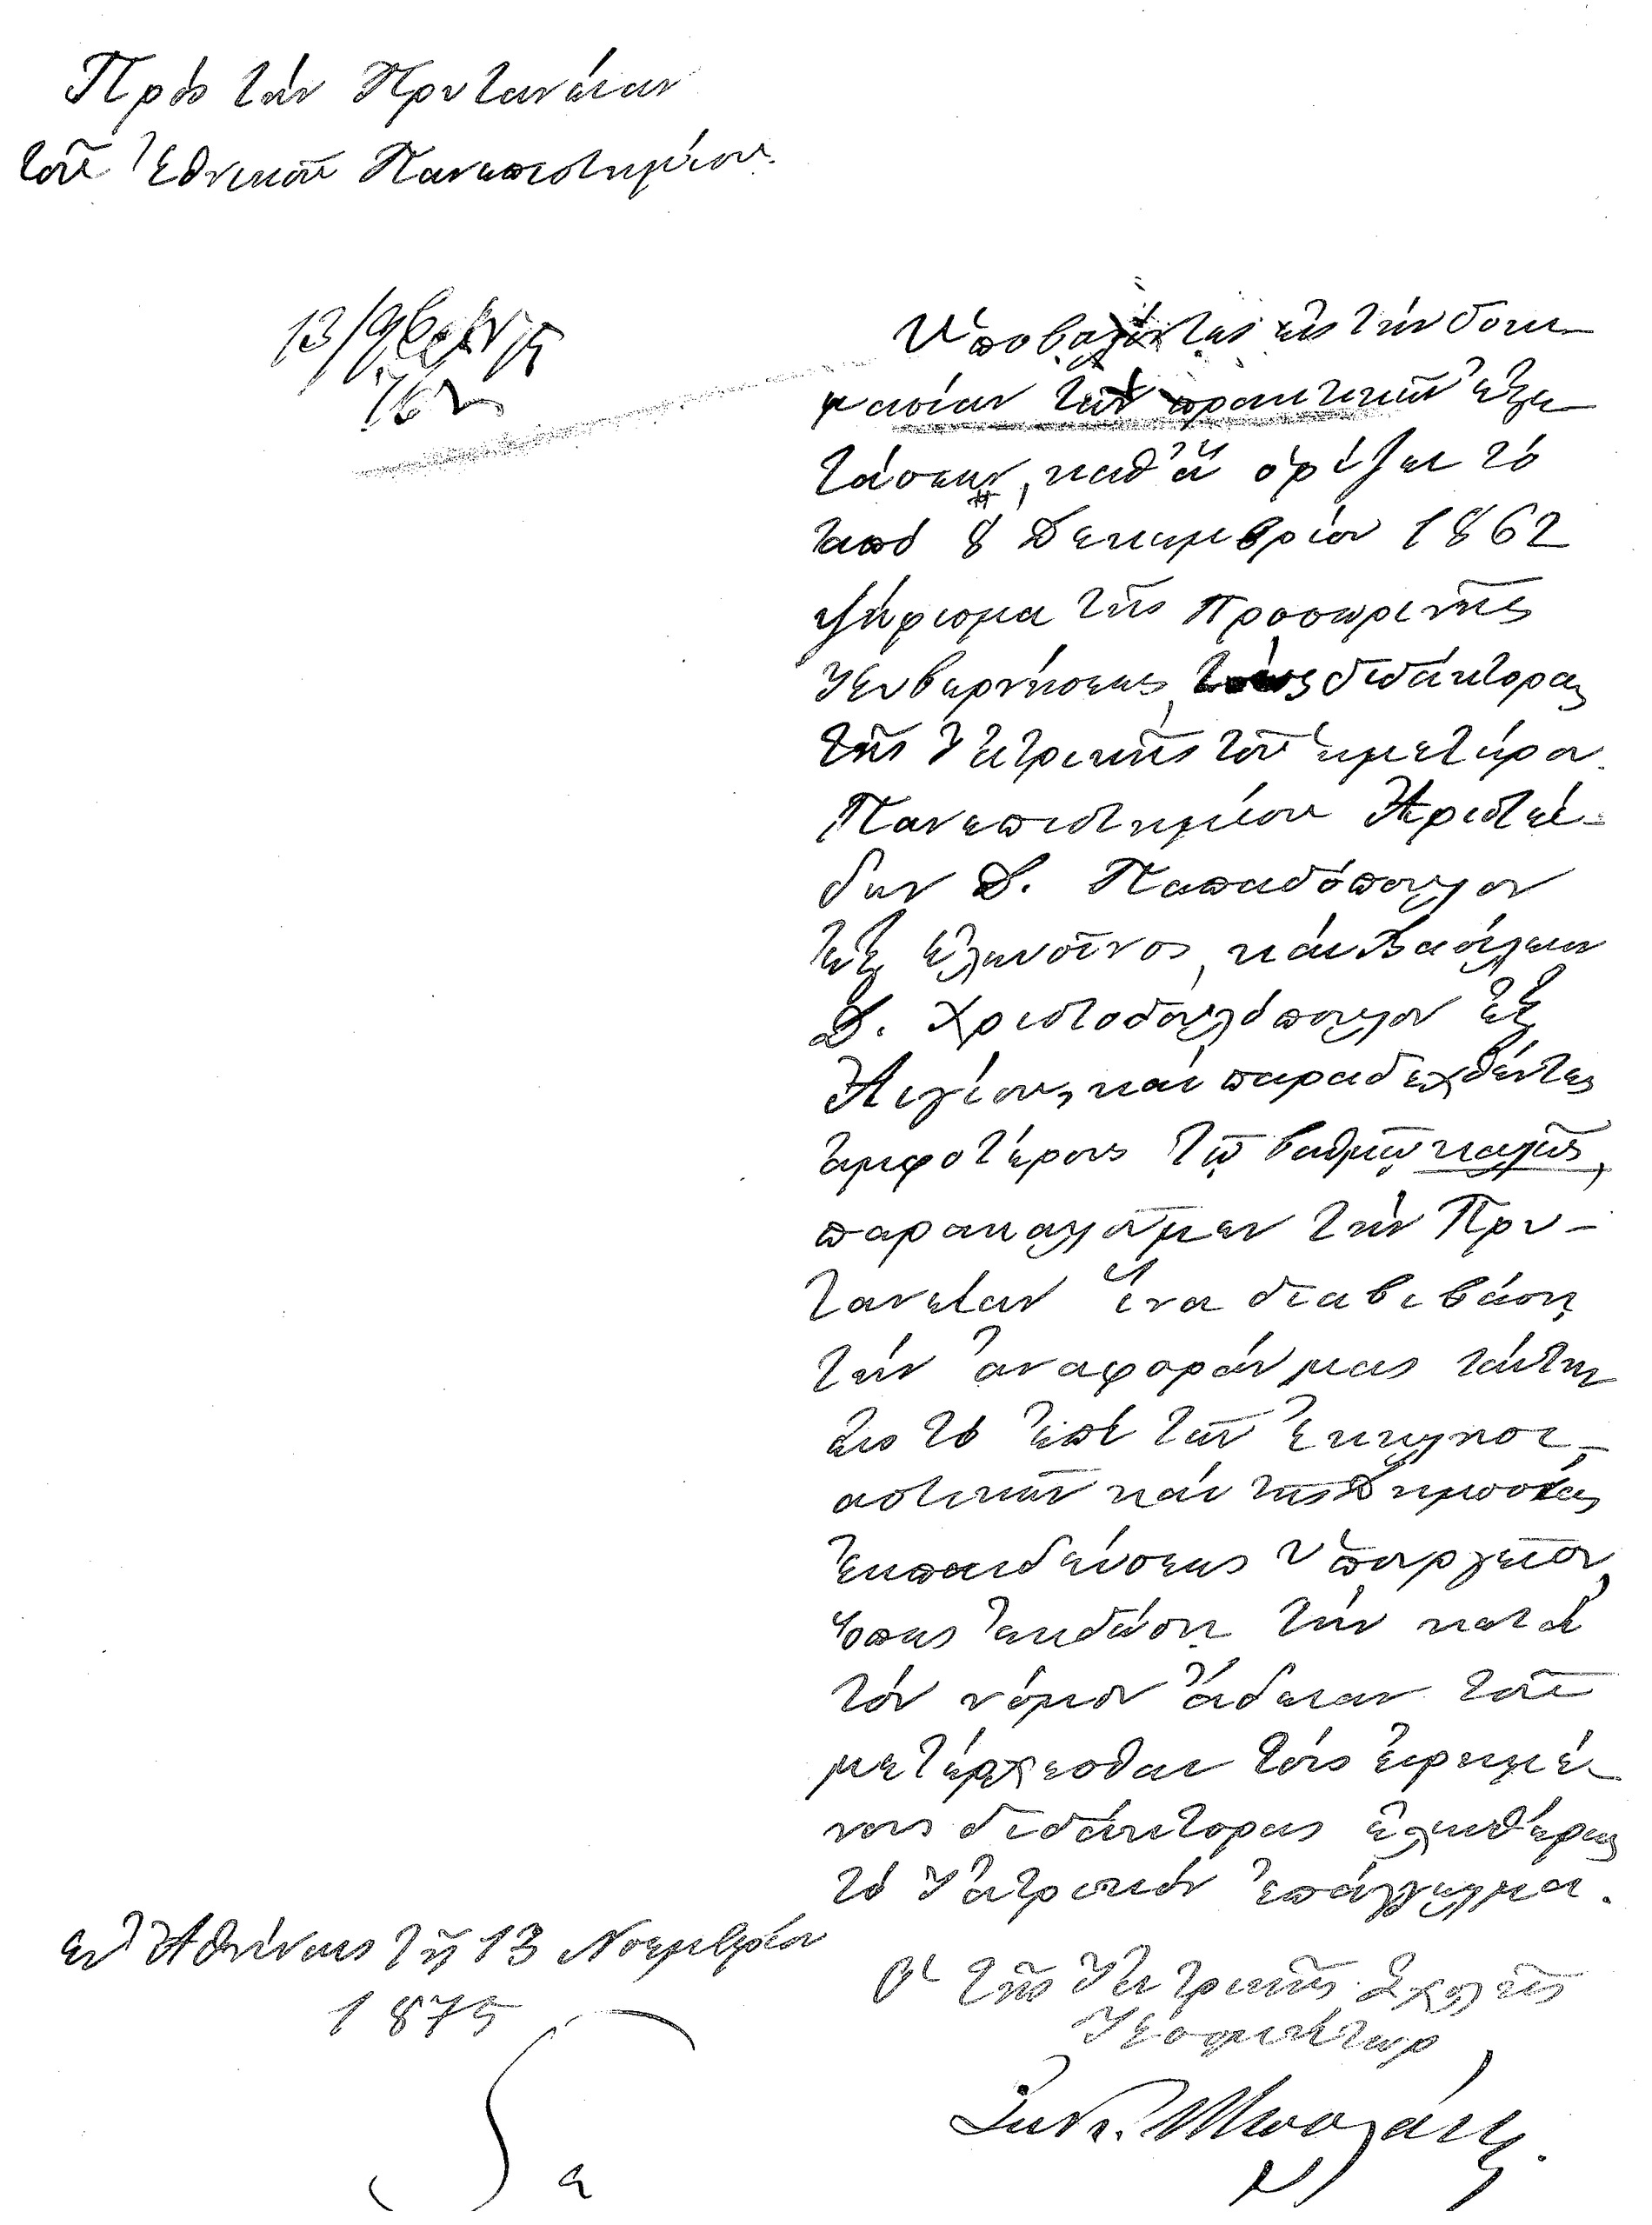 Πρὸς τὴν Πρυτανείαν
τοῦ Ἐθνικοῦ Πανεπιστημίου.
13/9βρίου 75
762
Ὑποβαλόντες εἰς τὴν δοκι-
μασίαν τῶν πρακτικῶν ἐξε-
τάσεων, καθ' ἃ ὁρίζει τὸ
ἀπὸ 8 Δεκεμβρίου 1862
ψήφισμα τῆς Προσωρινῆς
Κυβερνήσεως, τοὺς διδάκτορας
τῆς Ἰατρικῆς τοῦ ἡμετέρου
Πανεπιστημίου Ἀριστεί-
δην Δ. Παπαδόπουλον
ἐξ Ἐλευσῖνος, καὶ Βασίλειον
Δ. Χριστοδουλόπουλον ἐξ
Αἰγίου, καὶ παραδεχθέντες
ἀμφοτέρους τῷ βαθμῷ καλῶς,
παρακαλοῦμεν τὴν Πρυ-
τανείαν ἵνα διαβιβάσῃ
τὴν ἀναφοράν μας ταύτην
εἰς τὸ ἐπὶ τῶν Ἐκκλησι-
αστικῶν καὶ τῆς Δημοσίας
Ἐκπαιδεύσεως Ὑπουργεῖον,
ὅπως ἐκδώσῃ τὴν κατὰ
τὸν νόμον ἄδειαν τοῦ
μετέρχεσθαι τοὺς εἰρημέ-
νους διδάκτορας ἐλευθέρως
τὸ Ἰατρικὸν ἐπάγγελμα.
ἐν Ἀθήναις τῇ 13 Νοεμβρίου
1875
Ὁ τῆς Ἰατρικῆς Σχολῆς
Κοσμήτωρ